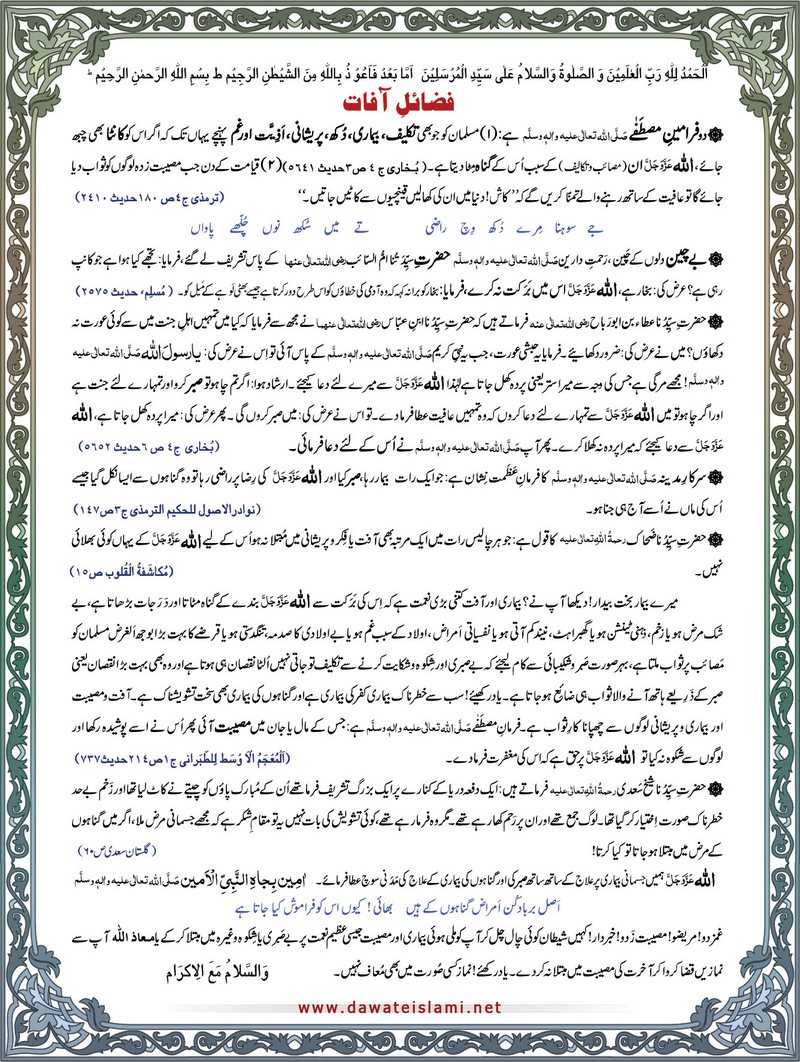 اَلْحَمْدُ لِلّٰهِ رَبِّ الْعٰلَمِيْنَ وَ الصَّلٰوةُ وَالسَّلَامُ عَلٰى سَيِّدِ الْمُرْسَلِيْنَ اَمَّا بَعْدُ فَاَعُوْذُ بِاللّٰهِ مِنَ الشَّيْطٰنِ الرَّجِيْمِ ط بِسْمِ اللّٰهِ الرَّحْمٰنِ الرَّحِيْمِ ط
فضائلِ آفات
دو فرامینِ مصطَفٰے صَلَّی اللہ تعالٰی علیہ واٰلہٖ وسلَّم ہے: (۱) مسلمان کو جو بھی تکلیف، بیماری، دُکھ، پریشانی، اَذِیَّت اور غم پہنچے یہاں تک کہ اگر اس کو کانٹا بھی چبھ
جائے، اللہ عَزَّوَجَلَّ ان (مصائب و تکالیف) کے سبب اُس کے گناہ مٹا دیتا ہے۔ (بُخاری ج ٤ ص٣حدیث ٥٦٤١) (۲) قیامت کے دن جب مصیبت زدہ لوگوں کو ثواب دیا
جائے گا تو عافیت کے ساتھ رہنے والے تمنّا کریں گے کہ ’’کاش! دنیا میں ان کی کھالیں قینچیوں سے کاٹیں جاتیں۔‘‘ (ترمذی ج٤ص ١٨٠حدیث ٢٤١٠)
جے سوہنا مِرے دُکھ وِچ راضی تے میں سُکھ نوں چُلّھے پاواں
بے چین دلوں کے چَین، رَحمتِ دارین صَلَّی اللہ تعالٰی علیہ واٰلہٖ وسلَّم حضرتِ سیِّدَتُنا امُّ السّائب رضی اللہ تعالٰی عنہا کے پاس تشریف لے گئے، فرمایا: تجھے کیا ہوا ہے جو کانپ
رہی ہے؟ عرض کی: بخار ہے، اللہ عَزَّوَجَلَّ اس میں بَرَکت نہ کرے، فرمایا: بخار کو برا نہ کہہ کہ وہ آدمی کی خطاؤں کو اس طرح دور کرتا ہے جیسے بھٹّی لوہے کے مَیل کو۔ (مُسلِم، حدیث ٢٥٧٥)
حضرتِ سیِّدُنا عطاء بن ابو رَباح رضی اللہ تعالٰی عنہ فرماتے ہیں کہ حضرتِ سیِّدُنا ابنِ عبّاس رضی اللہ تعالٰی عنہما نے مجھ سے فرمایا کہ کیا میں تمہیں اہلِ جنت میں سے کوئی عورت نہ
دکھاؤں؟ میں نے عرض کی: ضرور دکھائیے۔ فرمایا یہ حبشی عورت، جب یہ نبیِّ کریم صَلَّی اللہ تعالٰی علیہ واٰلہٖ وسلَّم کے پاس آئی تو اس نے عرض کی: یا رسولَ اللہ صَلَّی اللہ تعالٰی علیہ
واٰلہٖ وسلَّم! مجھے مرگی ہے جس کی وجہ سے میرا ستر یعنی پردہ کھل جاتا ہے لہٰذا اللہ عَزَّوَجَلَّ سے میرے لئے دعا کیجئے۔ ارشاد ہوا: اگر تم چاہو تو صبر کرو اور تمہارے لئے جنت ہے
اور اگر چاہو تو میں اللہ عَزَّوَجَلَّ سے تمہارے لئے دعا کروں کہ وہ تمہیں عافیت عطا فرما دے۔ تو اس نے عرض کی: میں صبر کروں گی۔ پھر عرض کی: میرا پردہ کھل جاتا ہے، اللہ
عَزَّوَجَلَّ سے دعا کیجئے کہ میرا پردہ نہ کھلا کرے۔ پھر آپ صَلَّی اللہ تعالٰی علیہ واٰلہٖ وسلَّم نے اُس کے لئے دعا فرمائی۔ (بُخاری ج٤ ص ٦حدیث ٥٦٥٢)
سرکارِ مدینہ صَلَّی اللہ تعالٰی علیہ واٰلہٖ وسلَّم کا فرمانِ عَظَمت نِشان ہے: جو ایک رات بیمار رہا، صبر کیا اور اللہ عَزَّوَجَلَّ کی رِضا پر راضی رہا تو وہ گناہوں سے ایسا نکل گیا جیسے
اُس کی ماں نے اُسے آج ہی جنا ہو۔ (نوادر الاصول للحکیم الترمذی ج٣ص١٤٧)
حضرتِ سیِّدُنا ضَحّاک رحمۃُ اللہِ تعالٰی علیہ کا قول ہے: جو ہر چالیس رات میں ایک مرتبہ بھی آفت یا فِکر و پریشانی میں مُبتَلا نہ ہو اُس کے لیے اللہ عَزَّوَجَلَّ کے یہاں کوئی بھلائی
نہیں۔ (مُکاشَفۃُ الْقُلوب ص١٥)
میرے بیمار بخت بیدار! دیکھا آپ نے؟ بیماری اور آفت کتنی بڑی نعمت ہے کہ اِس کی بَرَکت سے اللہ عَزَّوَجَلَّ بندے کے گناہ مٹاتا اور دَرَجات بڑھاتا ہے، بے
شک مرض ہو یا زخم، ذِہنی ٹینشن ہو یا گھبراہٹ، نیند کم آتی ہو یا نفسیاتی اَمراض، اولاد کے سبب غم ہو یا بے اولادی کا صدمہ، تنگدستی ہو یا قرضے کا بہت بڑا بوجھ اَلْغَرض مسلمان کو
مَصائب پر ثواب ملتا ہے، بہر صورت صَبْر و شکیبائی سے کام لیجئے کہ بے صبری اور شِکوہ و شکایت کرنے سے تکلیف تو جاتی نہیں اُلٹا نقصان ہی ہوتا ہے اور وہ بھی بہت بڑا نقصان یعنی
صبر کے ذَرِیعے ہاتھ آنے والا ثواب ہی ضائع ہو جاتا ہے۔ یاد رکھیئے! سب سے خطرناک بیماری کفر کی بیماری ہے اور گناہوں کی بیماری بھی سخت تشویشناک ہے۔ آفت و مصیبت
اور بیماری و پریشانی لوگوں سے چھپانا کارِ ثواب ہے۔ فرمانِ مصطَفٰے صَلَّی اللہ تعالٰی علیہ واٰلہٖ وسلَّم ہے: جس کے مال یا جان میں مصیبت آئی پھر اُس نے اسے پوشیدہ رکھا اور
لوگوں سے شکوہ نہ کیا تو اللہ عَزَّوَجَلَّ پر حق ہے کہ اس کی مغفرت فرما دے۔ (اَلْمُعْجَمُ الْاَوْسَط لِلطَّبَرانی ج١ص٢١٤حدیث٧٣٧)
حضرتِ سیِّدُنا شیخ سَعدی رحمۃُ اللہِ تعالٰی علیہ فرماتے ہیں: ایک دفعہ دریا کے کنارے پر ایک بزرگ تشریف فرما تھے اُن کے مُبارک پاؤں کو چیتے نے کاٹ لیا تھا اور زَخم بے حد
خطرناک صورت اِختِیار کر گیا تھا۔ لوگ جمع تھے اور ان پر رَحم کھا رہے تھے۔ مگر وہ فرما رہے تھے، کوئی تشویش کی بات نہیں یہ تو مقامِ شکر ہے کہ مجھے جسمانی مرض ملا، اگر میں گناہوں
کے مرض میں مبتلا ہو جاتا تو کیا کرتا! (گلستان سعدی ص٦٠)
اللہ عَزَّوَجَلَّ ہمیں جسمانی بیماری پر علاج کے ساتھ ساتھ صبر کی اور گناہوں کی بیماری کے علاج کی مَدَنی سوچ عطا فرمائے۔ اٰمِین بِجاہِ النَّبِیِّ الْاَمین صَلَّی اللہ تعالٰی علیہ واٰلہٖ وسلَّم
اَصل برباد کُن اَمراض گناہوں کے ہیں بھائی! کیوں اس کو فراموش کیا جاتا ہے
غمزدو! مریضو! مصیبت زَدو! خبردار! کہیں شیطان کوئی چال چل کر آپ کو ملی ہوئی بیماری اور مصیبت جیسی عظیم نعمت پر بے صَبری یا شِکوہ وغیرہ میں مبتلا کر کے یا معاذ اللہ آپ سے
نمازیں قضا کروا کر آخرت کی مصیبت میں مبتلا نہ کر دے۔ یاد رکھئے! نماز کسی صورت میں بھی مُعاف نہیں۔ وَالسَّلَامُ مَعَ الْاِکْرَام
www.dawateislami.net